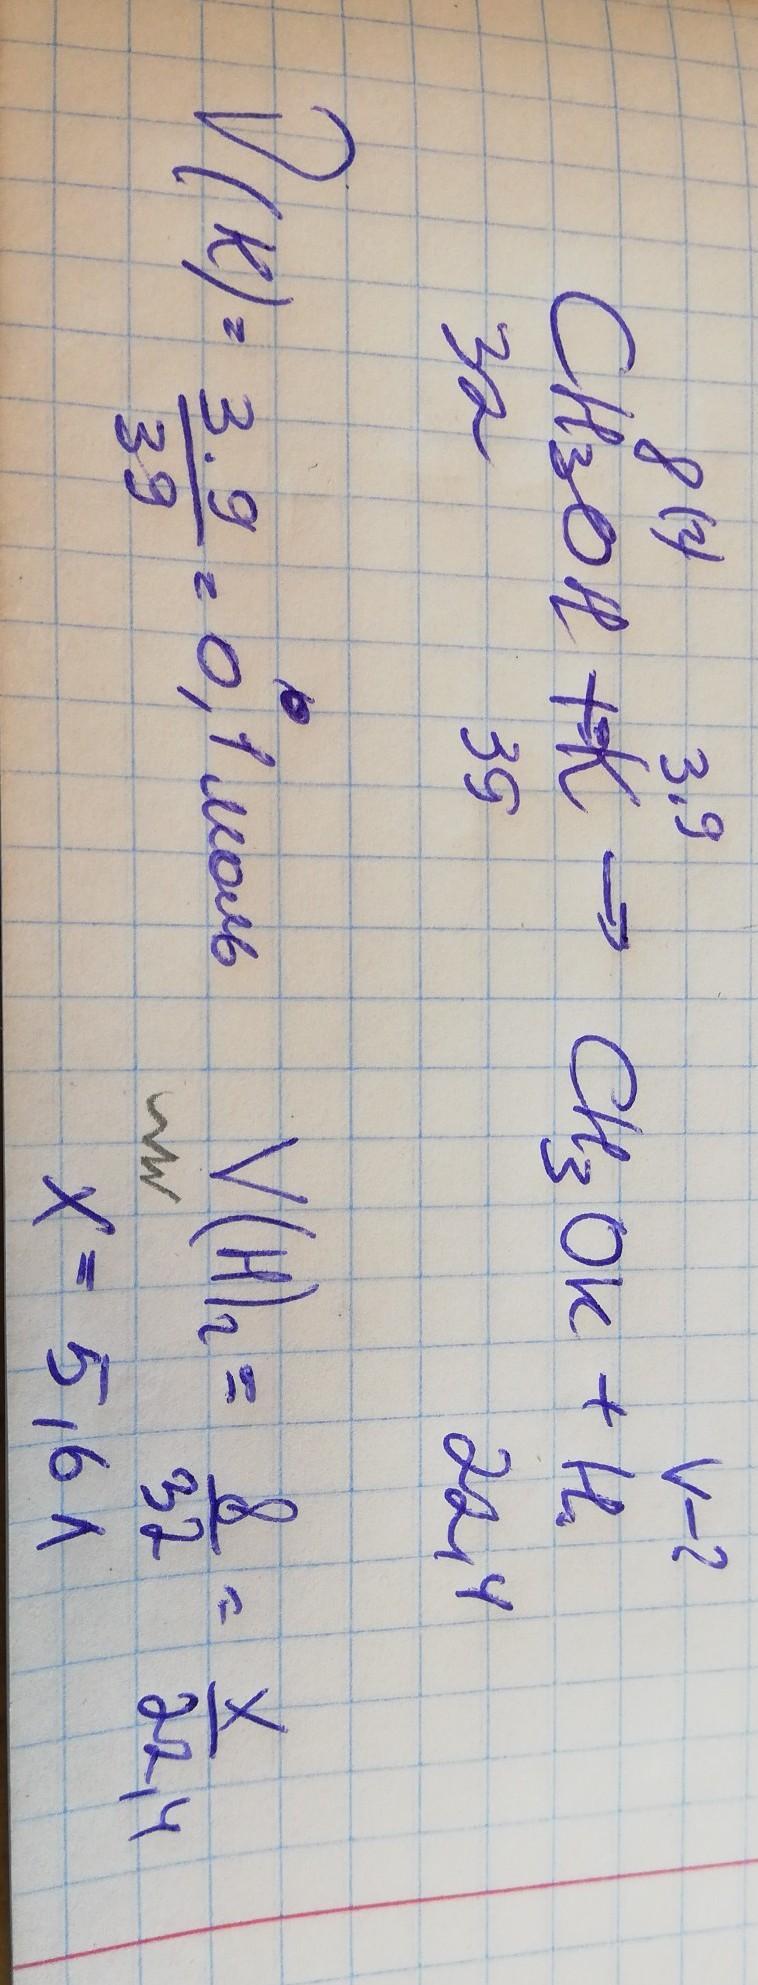 8(г) 3.9 V-?
CH3OH + K → CH3OK + H2
32 39 22,4
V(K) = 3.9/39 = 0,1 моль V(H)2 = 8/32 = x/22,4
x = 5,6 л